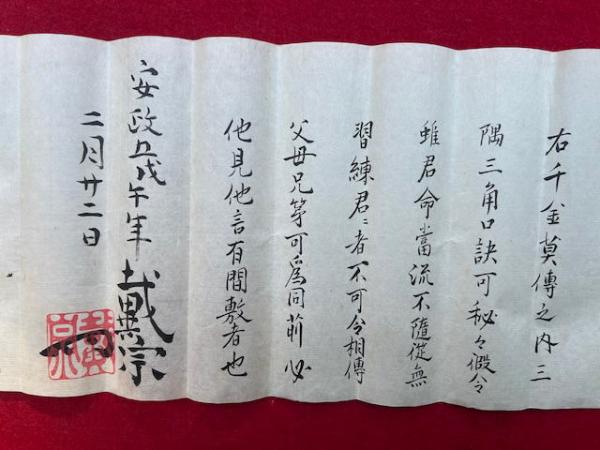 右千金莫傳之内三
隅三角口訣可秘々假令
雖君命當流不随從無
習練君ミ者不可令相傳
父母兄弟可爲同前必
他見他言有間敷者也
安政五戊午年 戴宗
二月廿二日